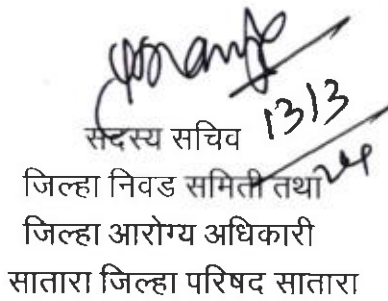 सदस्य सचिव
13/3
जिल्हा निवड समिती तथा
जिल्हा आरोग्य अधिकारी
सातारा जिल्हा परिषद सातारा